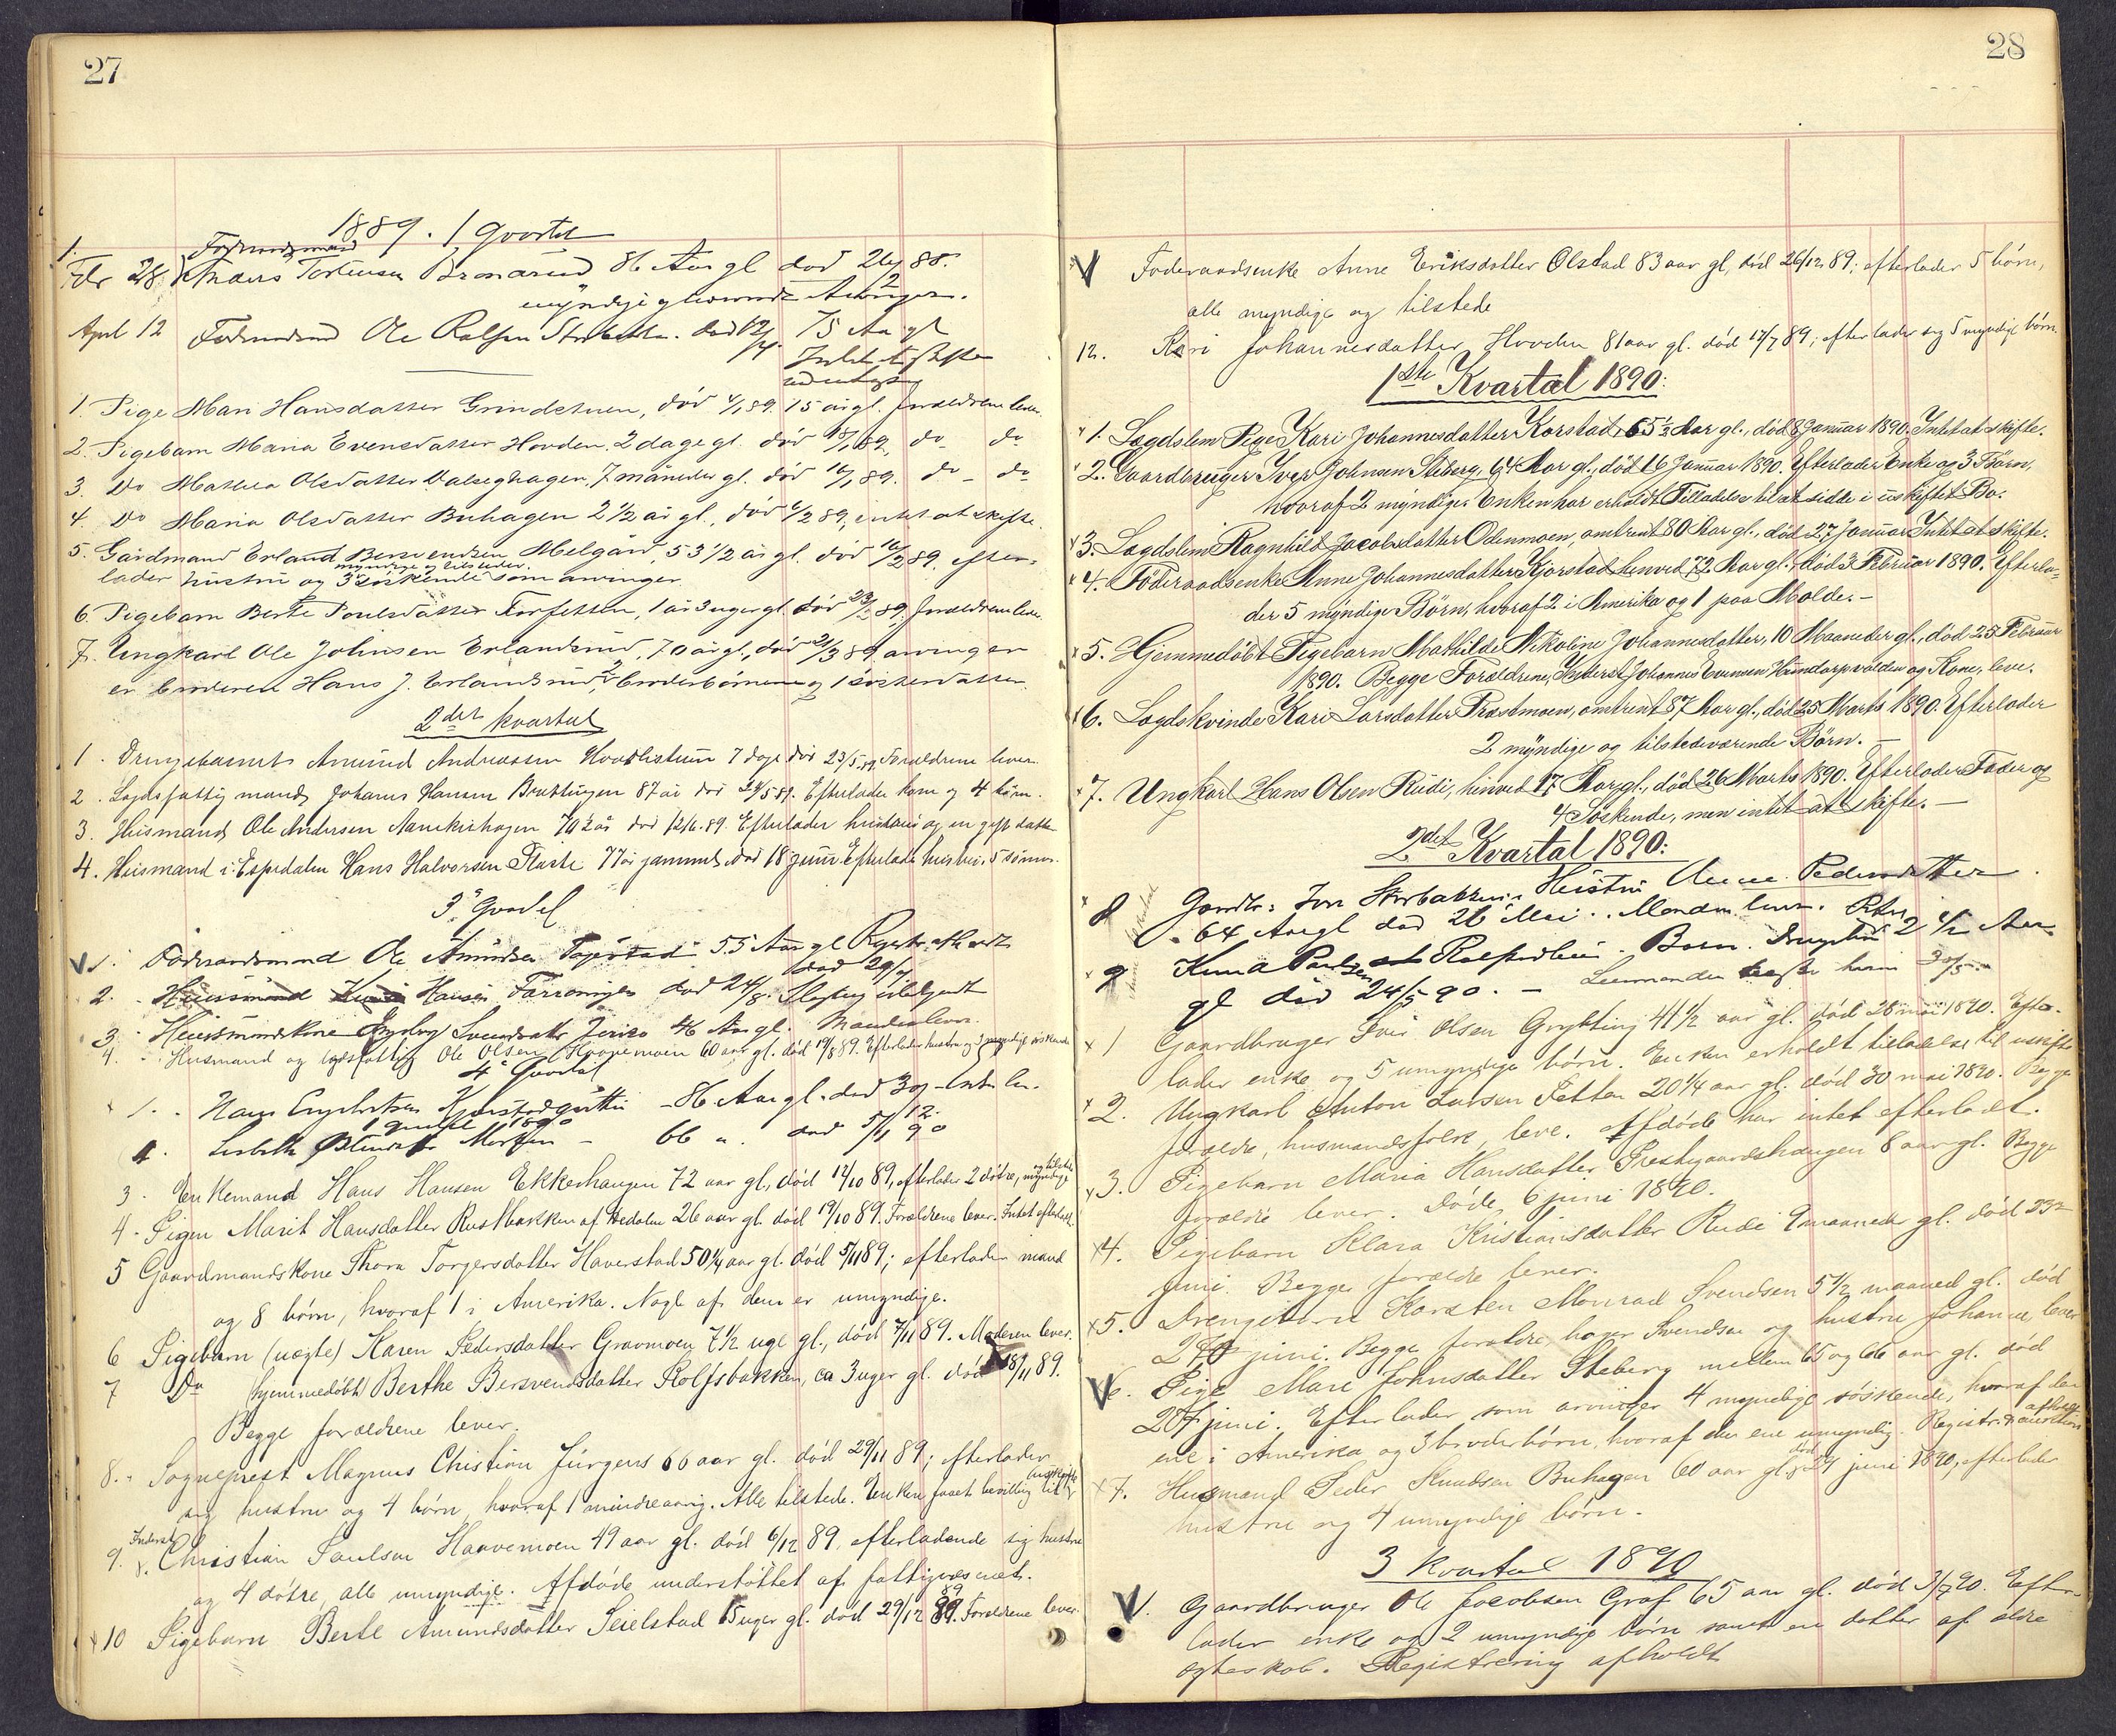 27
1889. 1 Qvartal
1.
Fodraadsmand
Febr 28 Anders Torstensen 86 Aar gl død 26/2 88.
myndige Arvinger.
April 12 Ole Rolfsen død 12/4 75 Aar gl
Intet at skifte
1. Pige Mari Hansdatter Grindstuen, død 4/1 89. 15 år gl. foreldrene lever.
2. Pigebarn Maria Evensdatter Hovden. 2 dage gl. død 18/1 89, do do
3. Do Mathea Olsdatter Valseghagen, 7 måneder gl. død 16/1 89. do - do
4. Do Maria Olsdatter Buhagen 2 1/2 år gl., død 6/2 89, intet at skifte.
5. Gårdmand Erland Bersvendsen Melgård, 53 1/2 år gl. død 16/2 89, efter-
myndige og tilstede.
lader hustru og 3 søskende som arvinger.
6. Pigebarn Berte Poulsdatter Forfetten, 1 år 3 uger gl. død 23/2 89. foreldrene leve.
7. Ungkarl Ole Johnsen Erlandsrud, 70 år gl., død 21/3 89. arvinger
er broderen Hans J. Erlandsrud, 2 broderbørn og 1 søsterdatter.
2det kvartal
1. Drengebarnet Amund Andreassen 7 dage død 23/5 89. Forældrene lever.
2. Lægdsfattig mand Johanes Hansen 87 år død 29/5 89. Efterlader kone og 4 børn.
3. Husmand Ole Andersen 70 1/2 år død 12/6. 89. Efterlader hustru og en gift datter
4. Husmand i Espedalen Hans Halvorsen Flaate 77 år gammel død 18 juni. Efterlader hustru, 5 sønner.
3. Qvartal
V 1. Föderaadsmand Ole Amundsen 55 Aar gl
død 29/7
2. Husmand Hansen død 24/8.
3. Husmandskone Svendsdatter 46 Aar gl. Manden lever.
4. Husmand og lægdsfattig Ole Olsen 60 aar gl. død 19/8 89. Efterlader hustru og 3 myndige søskende
4. Qvartal
1. Hans Engebretsen 86 Aar gl. død 30/12
1 Qvartal 1890
2. Lisbeth 66 " død 5/1 90
3. Enkemand Hans Hansen Ekkerhaugen 72 aar gl., død 12/10 89, efterlader 2 døtre, myndige og tilstede
4. Pigen Marit Hansdatter Rustbakken af Hedalen 26 aar gl. død 19/10 89. Forældrene lever. Intet efterladt.
5 Gaardmandskone Thora Torgersdatter Haverstad 50 1/4 aar gl. død 5/11 89; efterlader mand
og 8 børn, hvoraf 1 i Amerika. Nogle af dem er umyndige.
6 Pigebarn (uægte) Karen Pedersdatter Gravmoen 7 1/2 uge gl., død 7/11 89. Moderen lever.
7 Do (hjemmedøbt) Berthe Bersvendsdatter Rolfsbakken, ca 3 uger gl. død 18/11 89.
Begge forældrene lever.
8. Sogneprest Magnus Christian Jürgens 66 aar gl. død 29/11 89; efterlader
sig hustru og 4 børn, hvoraf 1 mindreaarig. Alle tilstede. Enken faaet bevilling til uskifte
Inderst
9. Christian Paulsen Haavemoen 49 aar gl. død 6/12 89, efterladende sig hustru
og 4 døtre, alle umyndige. Afdøde understøttet af fattigvæsenet.
x 10 Pigebarn Berte Amundsdatter Seielstad 15 uger gl. død 29/12 89. Forældrene lever.
28
V Føderaadsenke Anne Eriksdatter Olstad 83 aar gl, død 26/12 89; efterlader 5 børn,
alle myndige og tilstede
12. Kari Johannesdatter Hovden 81 aar gl. død 17/7 89; efterlader sig 5 myndige børn.
1ste Kvartal 1890:
x 1. Lægdslem Pige Kari Johannesdatter Korstad, 65 1/2 Aar gl., død 8 Januar 1890. Intet at skifte.
x 2. Gaardbruger Iver Johnsen Steberg, 64 Aar gl., død 16 Januar 1890. Efterlader Enke og 3 Børn,
hvoraf 2 myndige. Enken har erholdt Tilladelse til at sidde i uskiftet Bo.
x 3. Lægdslem Ragnhild Jacobsdatter Odenmoen, omtrent 80 Aar gl., død 27 Januar. Intet at skifte.
x 4. Föderaadsenke Anne Johannesdatter Kjorstad henved 72 Aar gl., død 3 Februar 1890. Efterla-
der 5 myndige Börn, hvoraf 2 i Amerika og 1 paa Molde. -
x 5. Hjemmedöbt Pigebarn Mathilde Nikoline Johannesdatter, 10 Maaneder gl., død 25 Februar
1890. Begge Forældrene, Inderst Johannes Evensen Hundorpvolden og Kone, leve.
x 6. Lægdskvinde Kari Larsdatter Træstmoen, omtrent 87 Aar gl., død 25 Marts 1890. Efterlader
2 myndige og tilstedeværende Börn. -
x 7. Ungkarl Hans Olsen Rudi, henved 17 Aar gl., død 26 Marts 1890. Efterlader Fader og
4 Söskende, men intet at skifte. -
2det Kvartal 1890:
x 8 Gaardbr: Jon Storbakken Hustru Anne Pedersdatter.
64 Aar gl død 26 Mai. Manden lever.
x 9 Barn. 2 1/2 Aar
gl død 24/5 90. -
x 1 Gaardbruger Iver Olsen Grytting 41 1/2 aar gl. død 28 mai 1890. Efter-
lader enke og 5 umyndige børn. Enken erholdt tilladelse til uskifte
x 2. Ungkarl Anton Larsen Fetten 20 1/4 aar gl. død 30 mai 1890. Begge
forældre, husmandsfolk, leve. Afdøde har intet efterladt.
x 3. Pigebarn Maria Hansdatter Prestegaardshaugen 8 aar gl. Begge
forældre lever. Døde 6 juni 1890.
x 4. Pigebarn Klara Kristiansdatter Rudi 9 maaneder gl. død 23de
juni. Begge forældre lever.
x 5. Drengebarn Karsten Monrad Svendsen 5 1/2 maaned gl. død
24 juni. Begge forældre, Svendsen og hustru Johanne, lever
V 6. Pige Mari Johnsdatter Steberg mellem 65 og 66 aar gl. død
24 juni. Efterlader som arvinger 4 myndige søskende, hvoraf den
ene i Amerika og 3 broderbørn, hvoraf den ene umyndig. Registr. & auktion afholdt
x 7. Husmand Peder Knudsen Buhagen 60 aar gl, død 24 juni 1890, efterlader
hustru og 4 umyndige børn.
3 kvartal 1890
V 1. Gaardbruger Ole Jacobsen Graf 65 aar gl. død 3/7 90. Efter-
lader enke og 2 umyndige børn samt en datter af ældre
ægteskab. Registrering afholdt